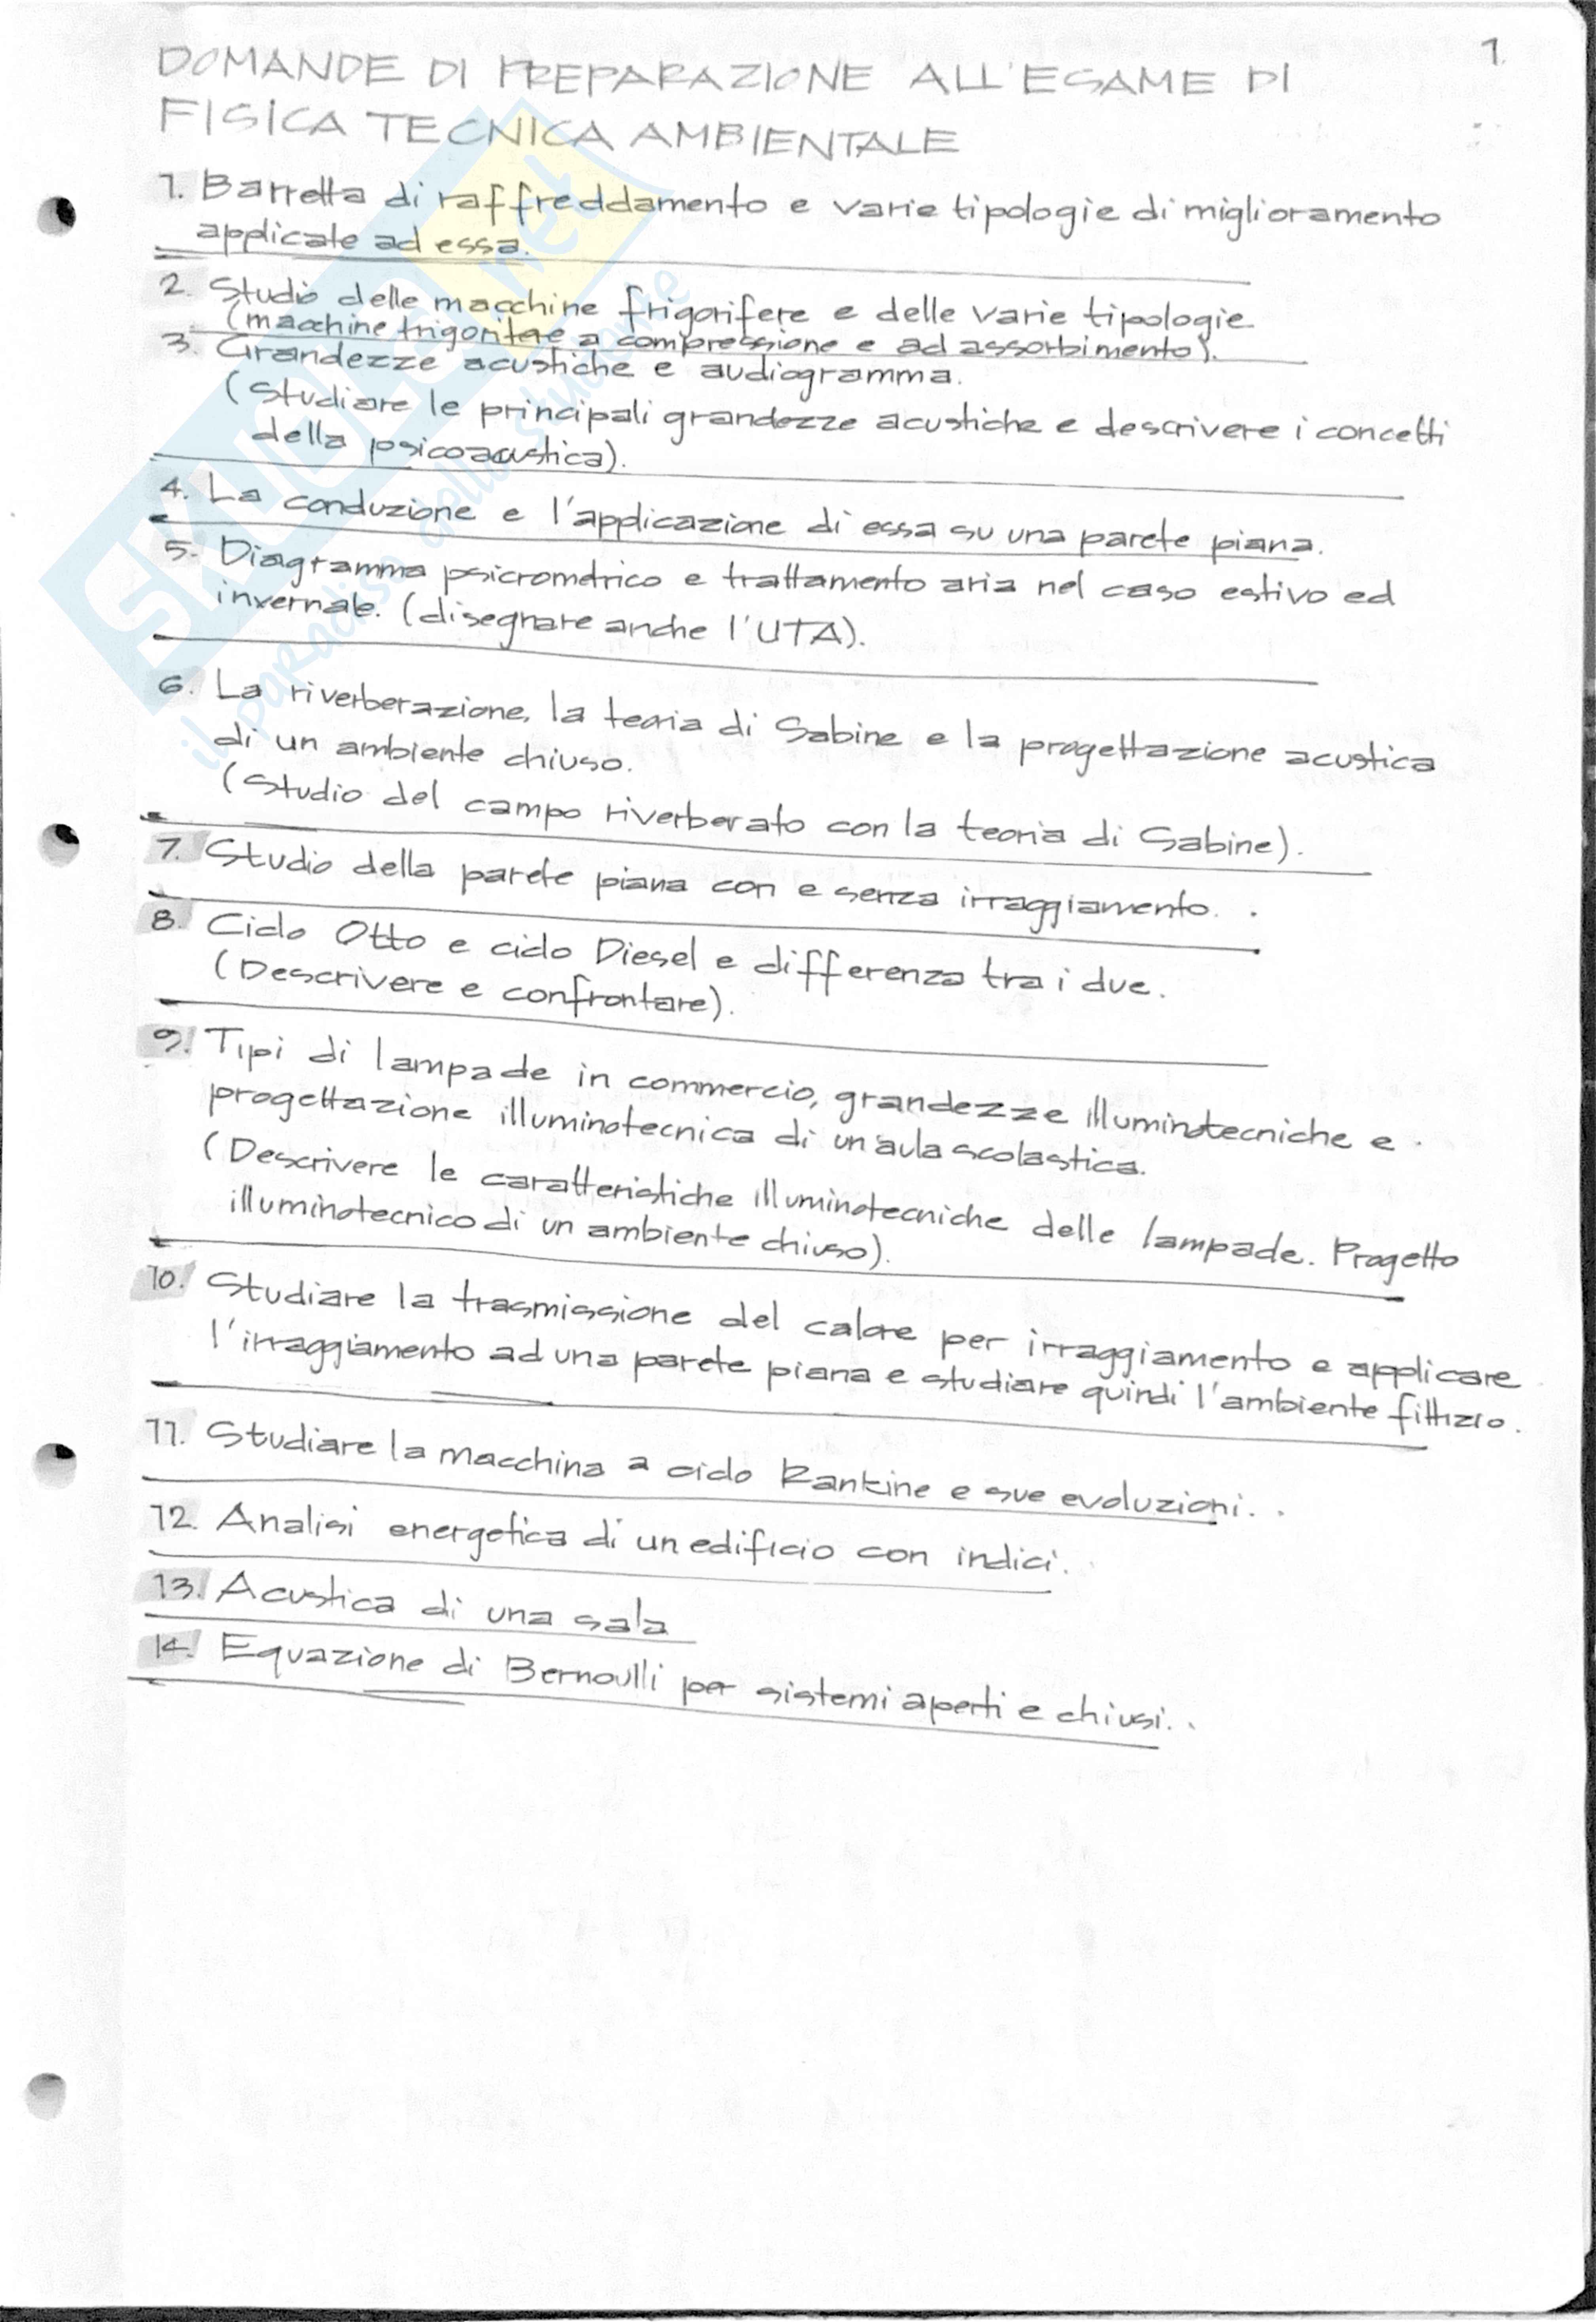 1.
DOMANDE DI PREPARAZIONE ALL'ESAME DI
FISICA TECNICA AMBIENTALE
1. Barretta di raffreddamento e varie tipologie di miglioramento
applicate ad essa.
2. Studio delle macchine frigorifere e delle varie tipologie
(macchine frigorifere a compressione e ad assorbimento).
3. Grandezze acustiche e audiogramma.
(Studiare le principali grandezze acustiche e descrivere i concetti
della psicoacustica).
4. La conduzione e l'applicazione di essa su una parete piana.
5. Diagramma psicrometrico e trattamento aria nel caso estivo ed
invernale. (disegnare anche l'UTA).
6. La riverberazione, la teoria di Sabine e la progettazione acustica
di un ambiente chiuso.
(Studio del campo riverberato con la teoria di Sabine).
7. Studio della parete piana con e senza irraggiamento.
8. Ciclo Otto e ciclo Diesel e differenza tra i due.
(Descrivere e confrontare).
9. Tipi di lampade in commercio, grandezze illuminotecniche e
progettazione illuminotecnica di un'aula scolastica.
(Descrivere le caratteristiche illuminotecniche delle lampade. Progetto
illuminotecnico di un ambiente chiuso).
10. Studiare la trasmissione del calore per irraggiamento e applicare
l'irraggiamento ad una parete piana e studiare quindi l'ambiente fittizio.
11. Studiare la macchina a ciclo Rankine e sue evoluzioni.
12. Analisi energetica di un edificio con indici.
13. Acustica di una sala
14. Equazione di Bernoulli per sistemi aperti e chiusi.
SKUOLA.net
il paradiso dello studente